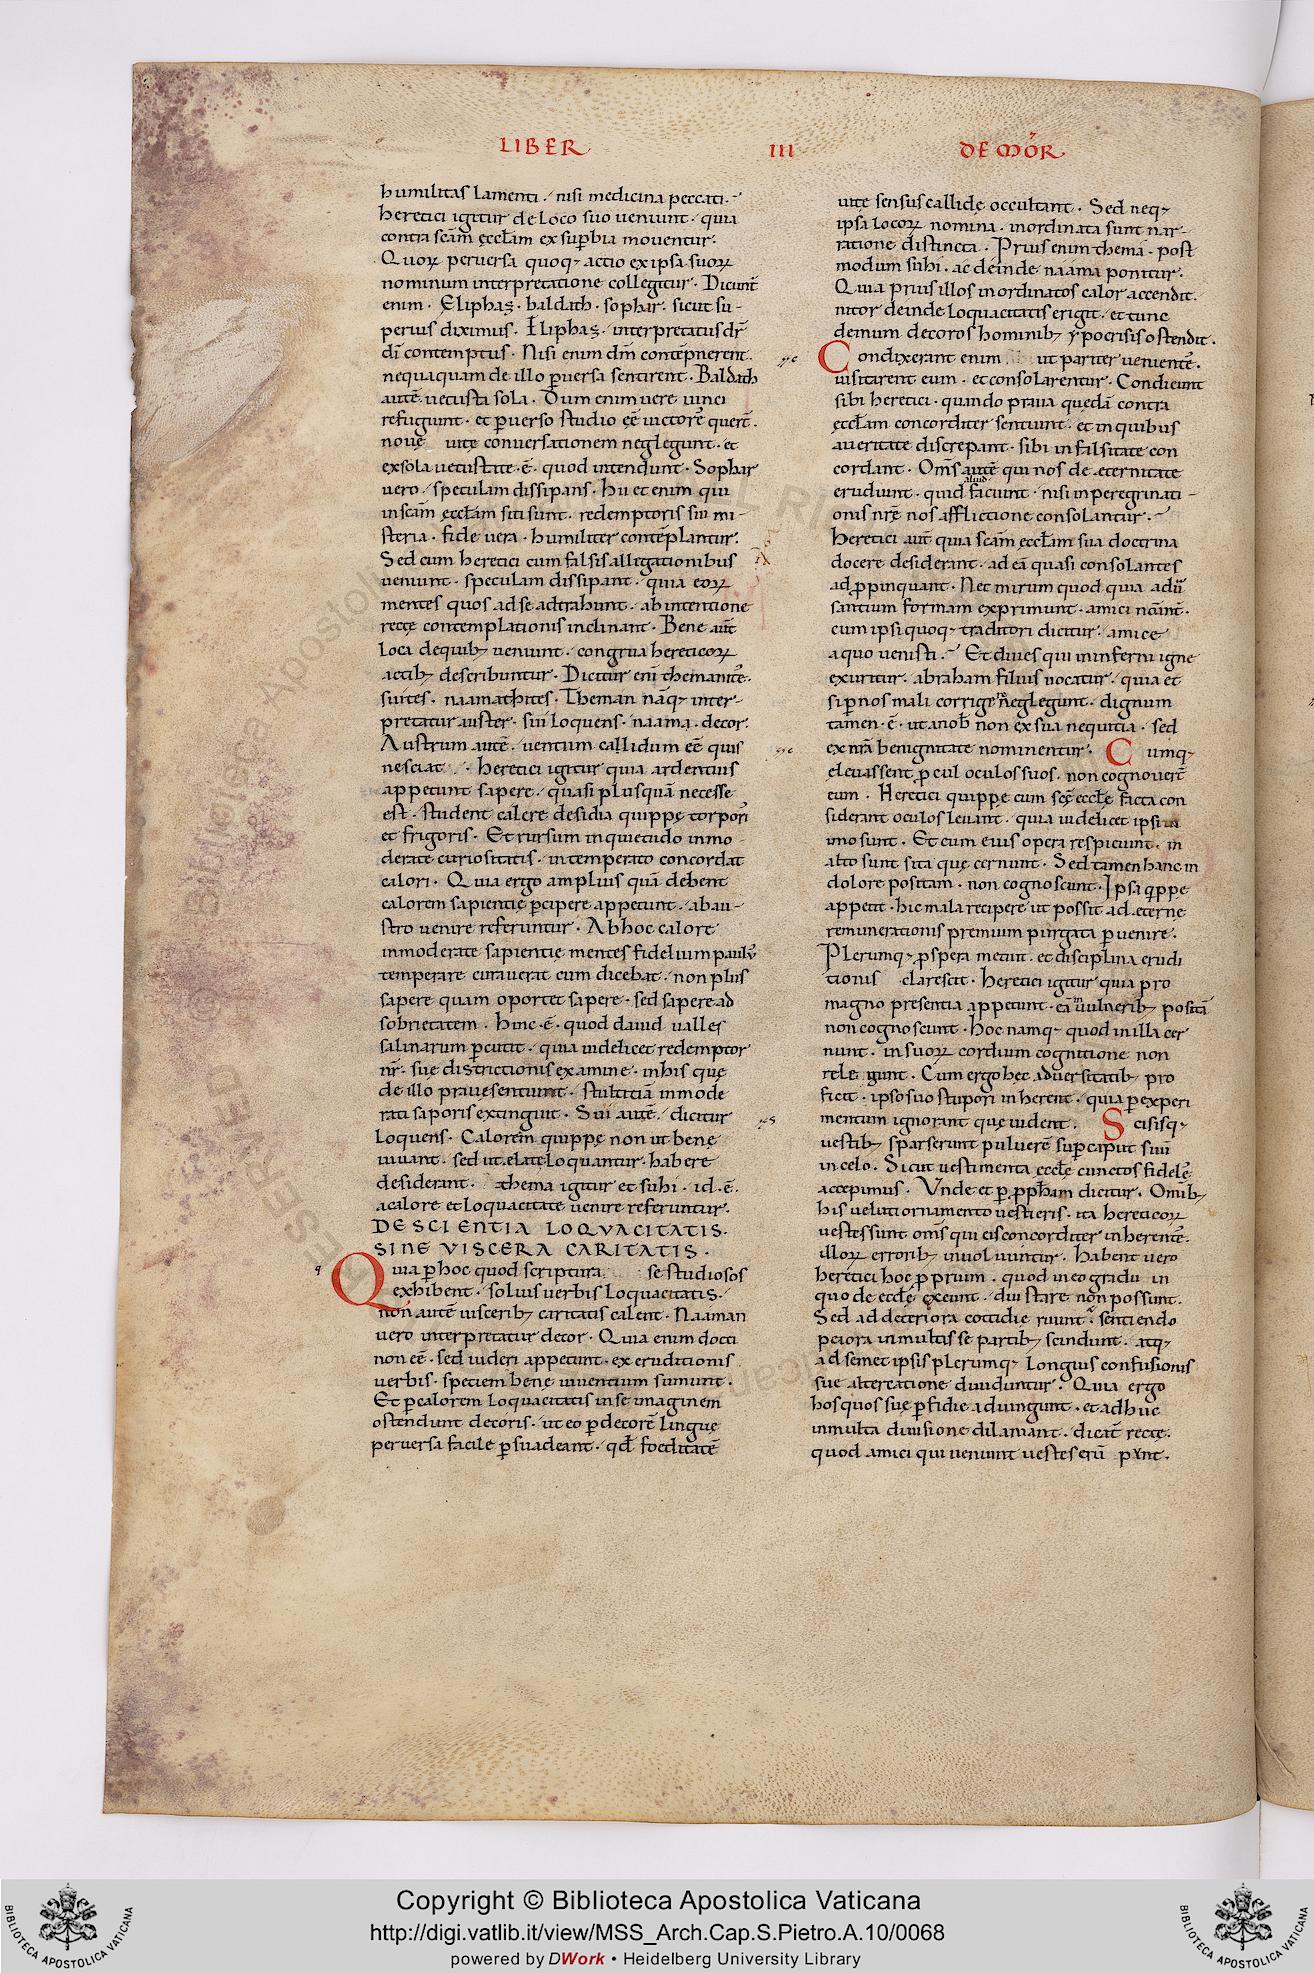 LIBER III DE MOR̄
humilitas lamenti · nisi medicina peccati ·
Heretici igitur de loco suo ueniunt · quia
contra scām ęccłam ex sup̄bia mouentur ·
Quoꝝ peruersa quoq; actio ex ipsa suoꝝ
nominum interpretatione colligitur · Dicunt̄
enim · Eliphaz · baldath · sophar · sicut su-
perius diximus · Eliphaz · interpretatus dr̄
dī contemptus · Nisi enim dm̄ contēpnerent ·
nequaquam de illo ꝑuersa sentirent · Baldath
autē uetusta sola · Dum enim uere uinci
refugiunt · et ꝑuerso studio eē uictores querunt̄ ·
nouę uitę conuersationem neglegunt · et
ex sola uetustate · ē · quod intendunt · Sophar
uero · speculam dissipans · Hii et enim qui
in scām ęccłam siti sunt · redemptoris sui mi-
steria · fide uera · humiliter contēplantur ·
Sed cum heretici cum falsis allegationibus
ueniunt · speculam dissipant · quia eoꝝ
mentes quos ad se adtrahunt · ab intentione
rectę contemplationis inclinant · Bene aut̄
loci de quib; ueniunt · congrua hereticoꝝ
actib; describuntur · Dicitur enī themanites ·
suites · naamathites · Theman nāq; inter-
pretatur auster · sui loquens · naama · decor ·
Austrum autē · uentum callidum eē quis
nesciat · Heretici igitur quia ardentius
appetunt sapere · quasi plusquā necesse
est · student calere desidia quippę torpori
et frigoris · Et rursum inquietudo inmo-
derate curiositatis · intemperato concordat
calori · Quia ergo amplius quā debent
calorem sapientię ꝑcipere appetunt · ab au-
stro uenire referuntur · Ab hoc calore
inmoderate sapientię mentes fidelium paulus
temperare curauerat cum dicebat · non plus
sapere quam oportet sapere · sed sapere ad
sobrietatem · Hinc · ē · quod dauid ualles
salinarum ꝑcutit · quia uidelicet redemptor
nr̄ · sue districtionis examine · in his quę
de illo praue sentiunt · stultitiā inmode
rati saporis extinguit · Sui autē · dicitur
loquens · Calorem quippę non ut bene
uiuant · sed ut elatę loquantur · habere
desiderant · thema igitur et suhi · id · ē ·
a calore et loquacitate uenire referuntur ·
DE SCIENTIA LOQVACITATIS ·
SINE VISCERA CARITATIS ·
q Quia ꝑ hoc quod scriptura se studiosos
exhibent · solius uerbis loquacitatis ·
non autē uiscerib; caritatis calent · Naaman
uero interpretatur decor · Quia enim docti
non eē · sed uideri appetunt · ex eruditionis
uerbis · speciem bene uiuentium sumunt ·
Et ꝑ calorem loquacitatis in se imaginem
ostendunt decoris · ut eo ꝑ decorē linguę
peruersa facile ꝑsuadeant · qd̄ foeditatē
uitę sensus callidę occultant · Sed neq;
ipsa locoꝝ nomina · inordinata sunt nar-
ratione distincta · Prius enim themā · post
modum suhi · ac deinde naama ponitur ·
Quia prius illos inordinatos calor accendit ·
nitor deinde loquacitatis erigit · et tunc
demum decoros hominib; ypocrisis ostendit ·
Condixerant enim ut pariter uenientes
uisitarent eum · et consolarentur · Condicunt
sibi heretici · quando praua quędā contra
ęccłam concorditer sentiunt · et in quibus
a ueritate discrepant · sibi in falsitate con
cordant · Om̄s autē qui nos de eternitate
erudiunt · quid aliud faciunt · nisi in peregrinati-
onis nr̄e nos afflictione consolantur ·
Heretici aut̄ quia scām ęccłam sua doctrina
docere desiderant · ad eā quasi consolantes
adꝓpinquant · Nec mirum quod quia aduer
santium formam exprimunt · amici nāint̄ ·
cum ipsi quoq; traditori dicitur · amice
a quo uenisti · Et diues qui in inferni igne
exuritur · abraham filius uocatur · quia et
si ꝑ nos mali corrigi neglegunt · dignum
tamen · ē · ut a nob̄ non ex sua nequitia · sed
ex nr̄a benignitate nominentur · Cumq;
eleuassent ꝓcul oculos suos · non cognouert̄
eum · Heretici quippe cum scę ecclę facta con
siderant oculos leuant · quia uidelicet ipsi in
imo sunt · Et cum eius opera respiciunt · in
alto sunt sita quę cernunt · Sed tamen hanc in
dolore positam · non cognoscunt · Ipsa q̄ppe
appetit · hic mala recipere ut possit ad eternę
remunerationis premium purgata ꝑuenire ·
Plerumq; ꝓspera metuit · et disciplina erudi
tionis clarescit · Heretici igitur quia pro
magno presentia appetunt · eā in uulnerib; positā
non cognoscunt · Hoc namq; quod in illa cer
nunt · in suoꝝ cordium cognitione non
rele gunt · Cum ergo hec aduersitatib; pro
ficit · ipso suo stupori inherent · quia ꝑ experi
mentum ignorant quę uident · Scisisq;
uestib; sparserunt puluerē sup̄ caput suū
in celo · Sicut uestimenta ecclę cunctos fideles
accepimus · Vnde et ꝑ ꝓpħam dicitur · Omīb;
his veluti ornamento uestieris · ita hereticoꝝ
uestes sunt om̄s qui eis concorditer inherentes ·
illoꝝ errorib; inuoluuntur · Habent uero
heretici hoc ꝓprium · quod in eo gradu in
quo de ecclę exeunt · diu stare non possunt ·
Sed ad deteriora cottidie ruunt · sentiendo
peiora in multis se partib; scindunt · atq;
ad semet ipsis plerumq; longius confusionis
sue altercatione diuiduntur · Quia ergo
hos quos suę ꝑfidie adiungunt · et adhuc
in multa diuisione dilaniant · dicat̄ recte ·
quod amici qui ueniunt uestes
Copyright © Biblioteca Apostolica Vaticana
http://digi.vatlib.it/view/MSS_Arch.Cap.S.Pietro.A.10/0068
powered by DWork • Heidelberg University Library